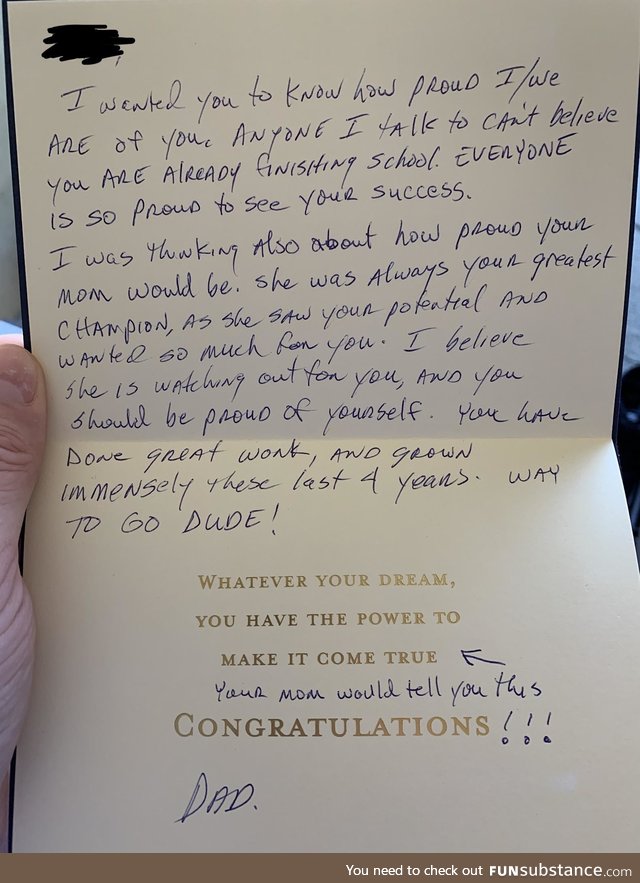 I wanted you to know how proud I/we
ARE of you. ANYONE I talk to CAN't believe
you ARE Already finishing school. EVERYONE
is so proud to see your success.
I was thinking Also about how proud your
mom would be. She was Always your greatest
CHAMPION, AS she SAW your potential AND
wanted so much for you. I believe
she is watching out for you, AND you
should be proud of yourself. You have
Done great work, AND grown
immensely these last 4 years. WAY
TO GO DUDE!
WHATEVER YOUR DREAM,
YOU HAVE THE POWER TO
MAKE IT COME TRUE
Your mom would tell you this
CONGRATULATIONS!!!
DAD.
You need to check out FUNsubstance.com